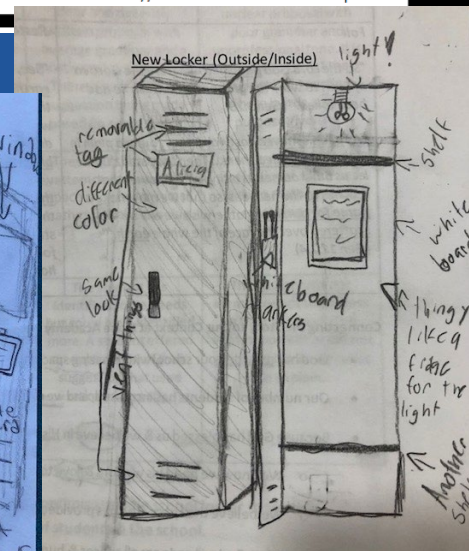 New Locker (Outside/Inside)
light!
removable
tag
Alicia
different
color
same
lock
vent things
shelf
white
board
whiteboard
markers
thingy
like a
fridge
for the
light
Another
Shelf